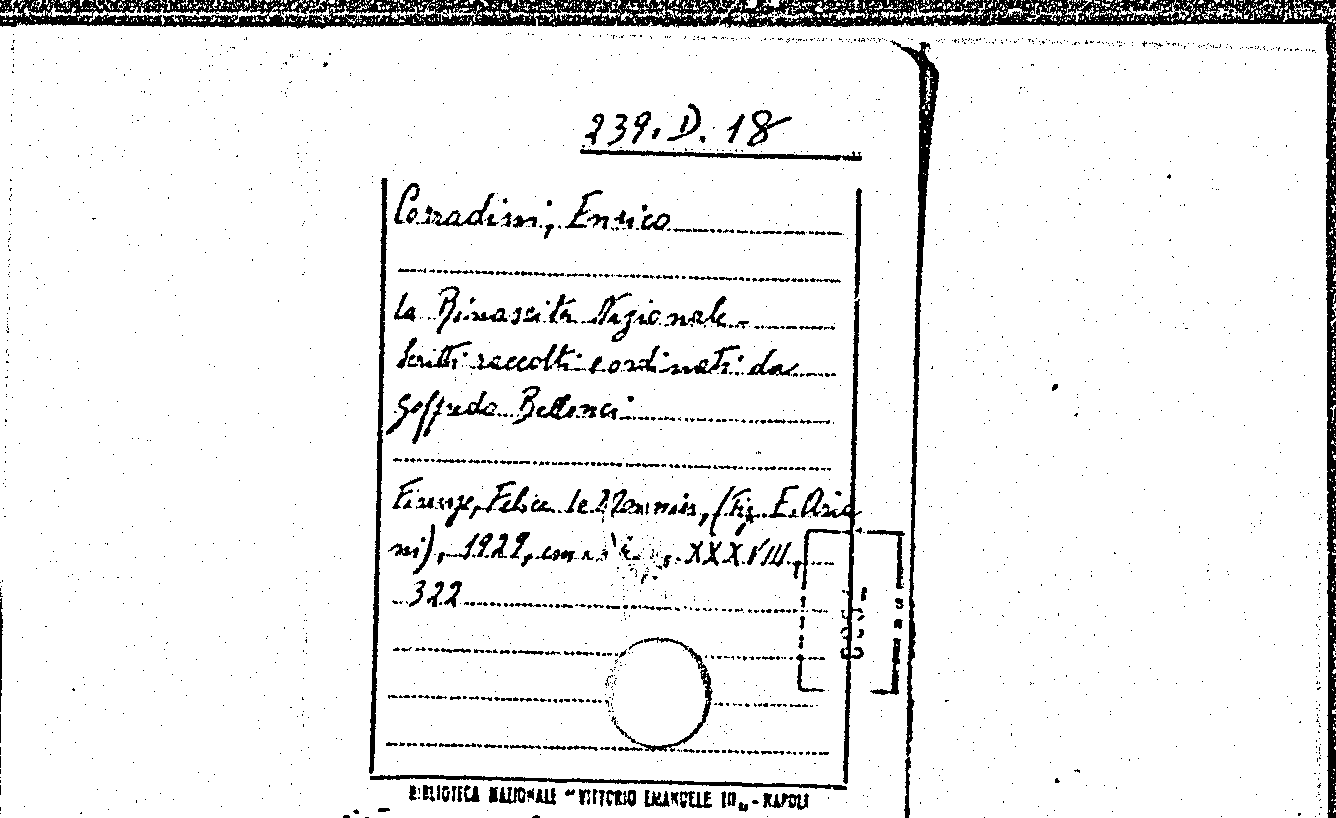 239. D. 18
Corradini, Enrico
La Rinascita Nazionale -
Scritti raccolti e ordinati da
Goffredo Bellonci
Firenze, Felice le Monnier, (Tip. E. Aria
ni), 1929, XXXVIII,
322
BIBLIOTECA NAZIONALE "VITTORIO EMANUELE III„ - NAPOLI